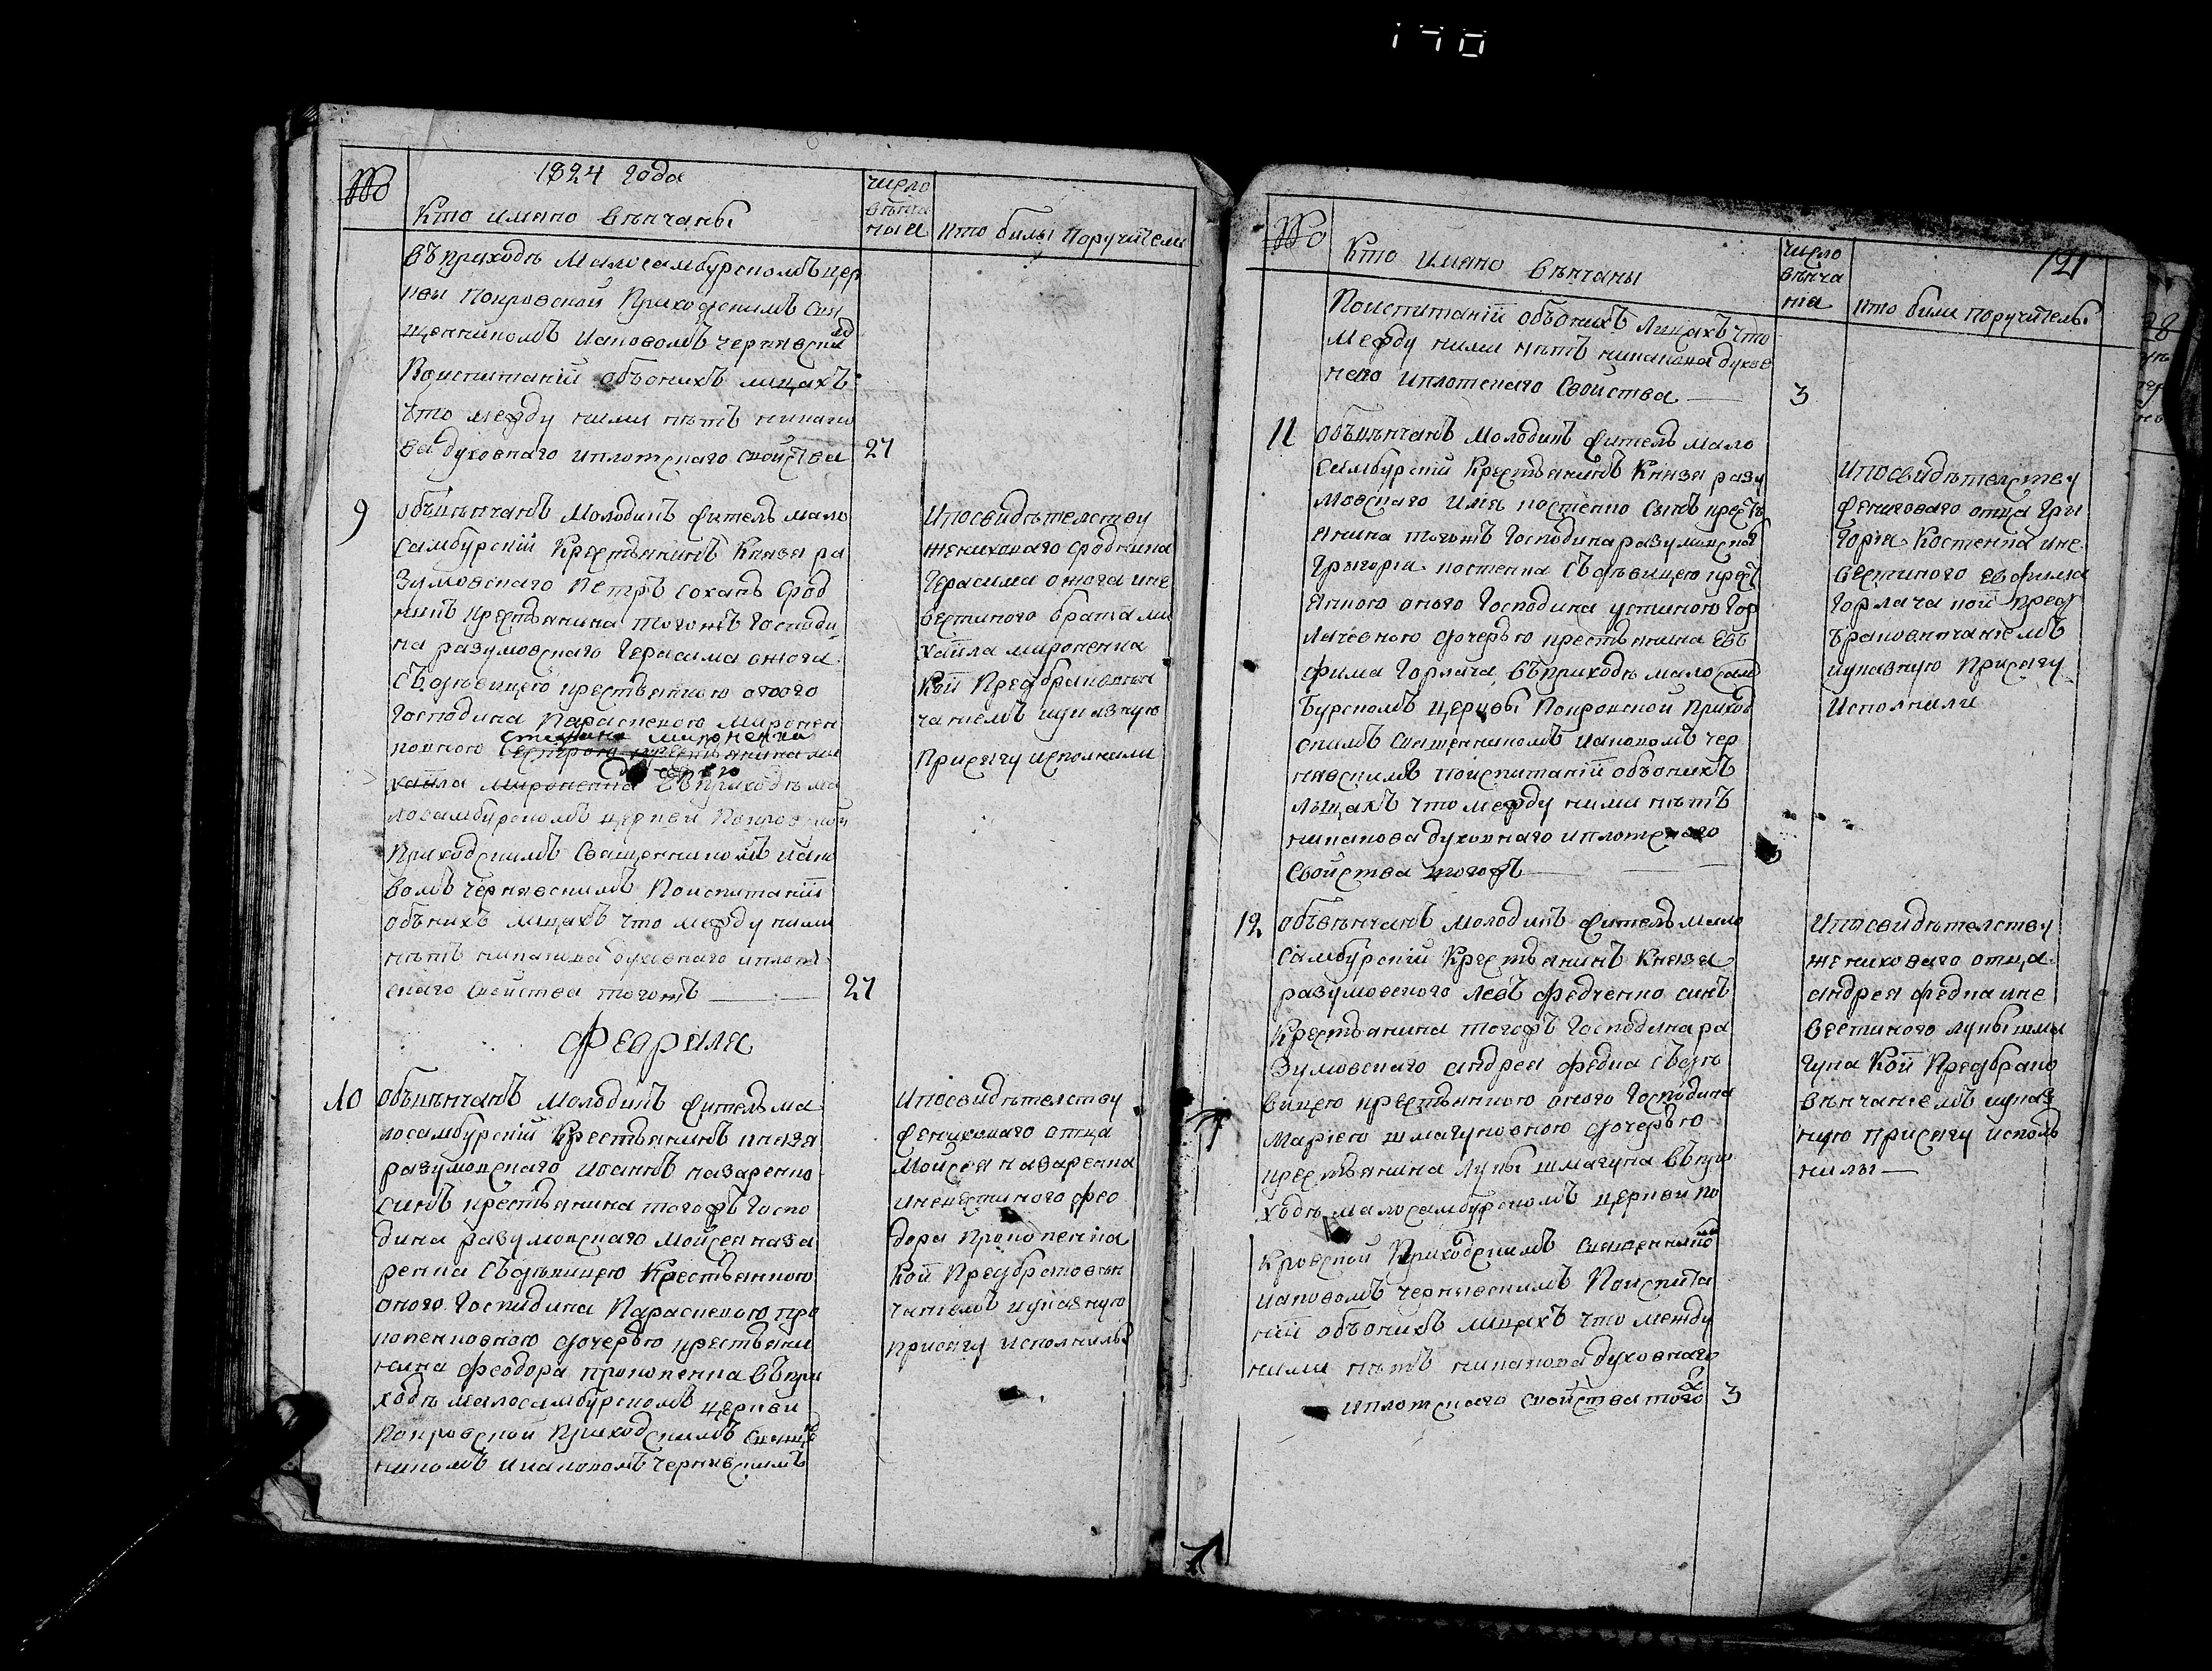 170
№
1824 года
Кто имяно вѣнчаны
число
вѣнча
ныя
кто билы Поручители
въ приходѣ Малосамбурскомъ цер
кви Покровской Приходскимъ Свя
щенникомъ Иаковомъ Чернявским
По испитаніи объ онихъ лицахъ
что между ними нѣтъ никако
ва духовнаго и плотскаго свойства
27
9
объвѣнчанъ Молодикъ житель мало
самбурскій Крестьянинъ Князя ра
зумовскаго Петръ сохань срод
никъ крестьянина тогожъ Господи
на разумовскаго Герасима
съ дѣвицею крестьянкою оного
Господина Параскевою Миронен
ковною
Стефана Мироненка
сестрою крестьянина ми
хаила мироненка въ приходѣ ма
лосамбурскомъ церкви Покровской
Приходскимъ Священникомъ Иако
вомъ Чернявскимъ По испитаніи
объ нихъ лицахъ что между ними
нѣтъ никакова духовнаго и плот
скаго свойства тогожъ
27
И по свидѣтелству
жениховаго сродника
Герасима и не
вестиного брата ми
хаила мироненка
Кои Предбраковен
чаніемъ указную
Присягу исполнили
Февраля
10
объвѣнчанъ Молодикъ житель ма
лосамбурскій Крестьянинъ князя
разумовскаго Иоаннъ назаренко
синъ крестьянина тогожъ Госпо
дина разумовскаго Мойсея наза
ренка съ дѣвицею Крестьянкою
оного Господина Параскевою про
копенковною дочерью крестьяни
нина Феодора прокопенка въ при
ходѣ малосамбурскомъ церкви
Покровской Приходскимъ Свяще
никомъ Иаковомъ Чернявскимъ
И по свидѣтелству
жениховаго отца
Мойсея назаренка
и невестиного фео
дора Прокопенка
Кои Предбраковѣн
чаніемъ указную
присягу исполнилы
№
Кто имяно вѣнчаны
число
вѣнча
нія
кто били поручителы
121
По испитаніи объ онихъ Лицахъ что
между ними нѣтъ никакова духов
наго и плотскаго Свойства
3
11
объвѣнчанъ Молодикъ житель мало
самбурскій Крестьянинъ Князя разу
мовскаго Илія костенко сынъ крестъ
янина тогожъ Господина разумовскаго
Григорія костенка съ дѣвицею крест
янкою оного Господина устиною Гор
лачевною дочерью крестьянина Евъ
фима Горлача въ приходѣ малосам
бурскомъ церквы Покровской Приход
скимъ Священникомъ Иаковомъ Чер
нявскимъ По испитаніи объ онихъ
лицахъ что между ними нѣтъ
никакова духовнаго и плотскаго
Свойства тогожъ
И по свидѣтелству
жениховаго отца Гри
горія Костенка и не
вестиного Евфима
Горлача кои Пред
браковѣнчаніемъ
указную Присягу
Исполнили
12
объвѣнчанъ молодикъ житель мало
самбурскій Крестьянинъ Князя
разумовского Левъ Федченко синъ
Крестьянина тогожъ Господина ра
зумовскаго андрея федка съ дѣ
вицею крестьянкою оного Господина
Маріею шмагуновною дочерью
крестьянина Луки шмагуна въ при
ходѣ малосамбурскомъ церкви По
кровской Приходскимъ Священнико
Иаковомъ Чернявскимъ По испита
ніи объ онихъ лицахъ что между
ними нѣтъ никакова духовнаго
и плотскаго свойства того
ж
3
И по свидѣтелству
жениховаго отца
андрея федка и не
вестиного луки шма
гуна Кои Предбрако
вѣнчаніемъ указ
ную присягу исполъ
нилы